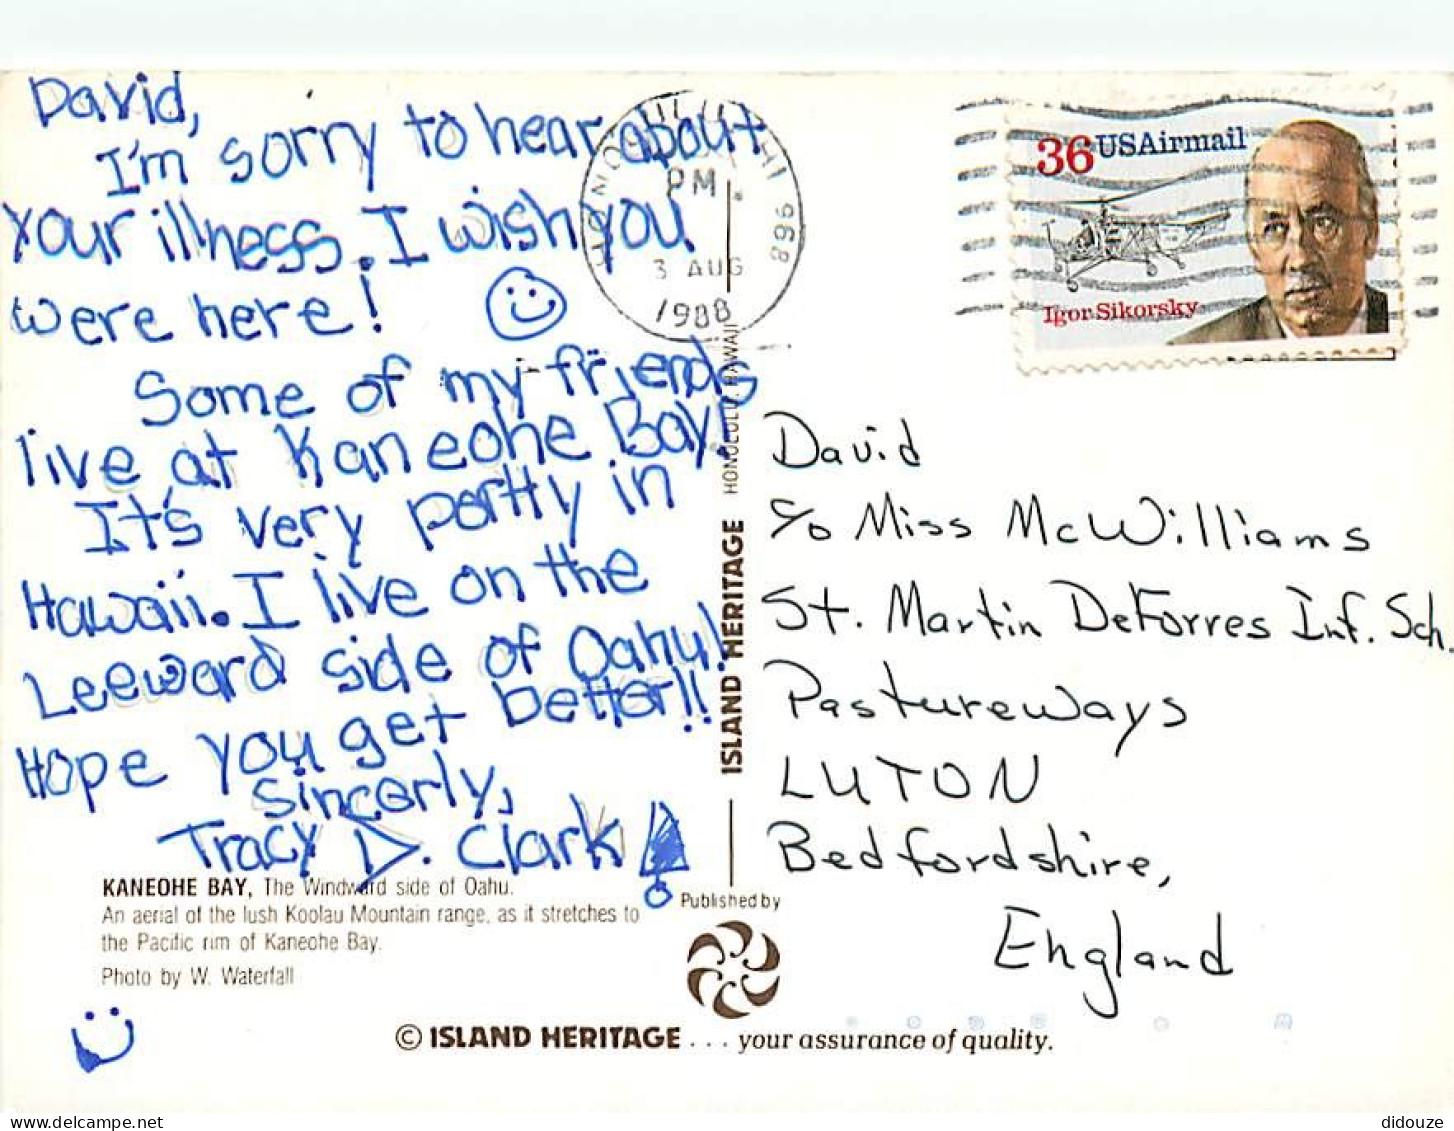 David,
I'm sorry to hear about
your illness. I wish you
were here!
Some of my friends
live at Kaneohe Bay.
It's very portty in
Hawaii. I live on the
Leeward side of Oahu!
Hope you get better!!
Sincerly,
Tracy D. Clark
KANEOHE BAY, The Windward side of Oahu.
An aerial of the lush Koolau Mountain range, as it stretches to
the Pacific rim of Kaneohe Bay.
Photo by W. Waterfall
ISLAND HERITAGE HONOLULU, HAWAII
Published by
© ISLAND HERITAGE . . . your assurance of quality.
HONOLULU, HI 968
PM
3 AUG
1988
36 USAirmail
Igor Sikorsky
David
c/o Miss McWilliams
St. Martin DeForres Inf. Sch.
Pastureways
LUTON
Bedfordshire,
England
delcampe.net
didouze